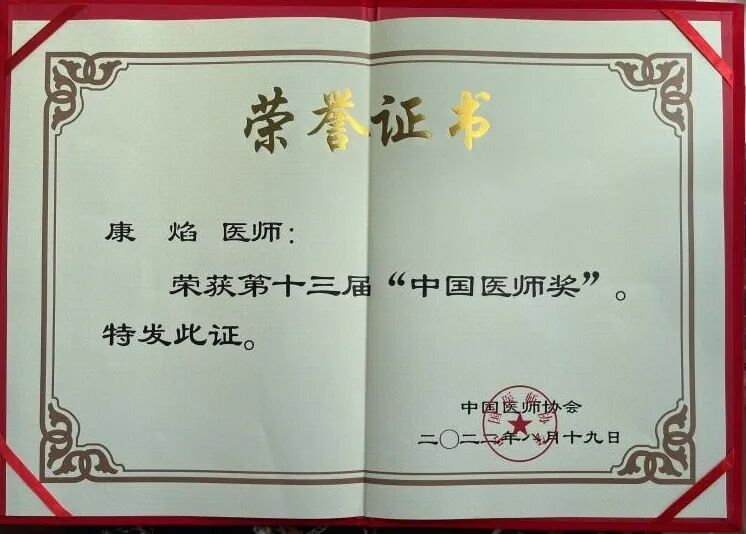 荣誉证书
康 焰 医师：
荣获第十三届“中国医师奖”。
特发此证。
中国医师协会
二〇二二年八月十九日